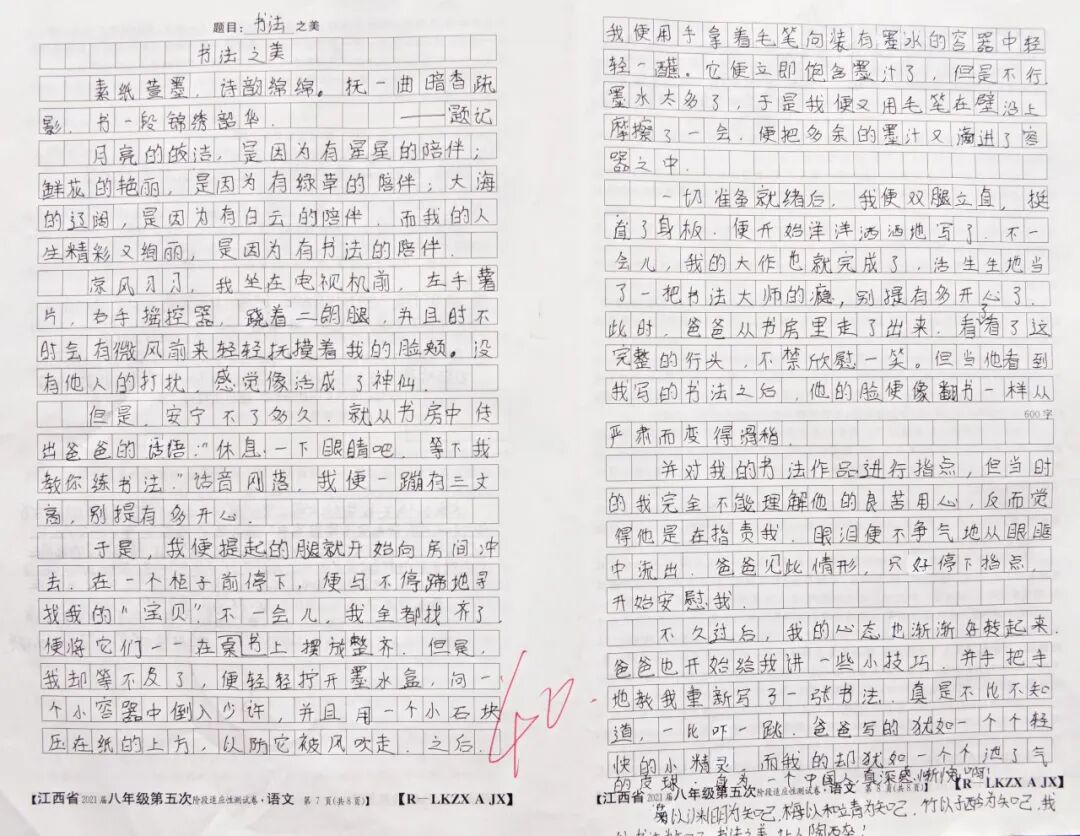 题目：书法 之美
书法之美
素纸萱墨，诗韵绵绵。抚一曲暗香疏
影，书一段锦绣韶华。 ——题记
月亮的皎洁，是因为有星星的陪伴；
鲜花的艳丽，是因为有绿草的陪伴；大海
的辽阔，是因为有白云的陪伴．而我的人
生精彩又绚丽，是因为有书法的陪伴．
凉风习习，我坐在电视机前，左手薯
片，右手摇控器，跷着二朗腿，并且时不
时会有微风前来轻轻抚摸着我的脸颊。没
有他人的打扰，感觉像活成了神仙．
但是，安宁不了多久．就从书房中传
出爸爸的话语:“休息一下眼睛吧，等下我
教你练书法．”话音刚落，我便一蹦有三丈
高，别提有多开心．
于是，我便提起的腿就开始向房间冲
去．在一个柜子前停下，便马不停蹄地寻
找我的“宝贝”．不一会儿，我全都找齐了．
便将它们一一在桌上摆放整齐．但是，
我却等不及了，便轻轻拧开墨水盒，向一
个小容器中倒入少许，并且用一个小石块
压在纸的上方，以防它被风吹走．之后．
40
【江西省2021届八年级第五次阶段适应性测试卷·语文 第 7 页(共 8 页)】 【R－LKZX A JX】
我便用手拿着毛笔向装有墨水的容器中轻
轻一蘸。它便立即饱含墨汁了，但是不行，
墨水太多了，于是我便又用毛笔在壁沿上
摩擦了一会．便把多余的墨汁又滴进了容
器之中．
一切准备就绪后，我便双腿立直，挺
直了身板．便开始洋洋洒洒地写了．不一
会儿，我的大作也就完成了，活生生地当
了一把书法大师的瘾，别提有多开心了．
此时，爸爸从书房里走了出来．看了看了这
完整的行头，不禁欣慰一笑。但当他看到
我写的书法之后，他的脸便像翻书一样从
600 字
严肃而变得滑稽．
并对我的书法作品进行指点，但当时
的我完全不能理解他的良苦用心，反而觉
得他是在指责我．眼泪便不争气地从眼眶
中流出．爸爸见此情形，只好停下指点，
开始安慰我．
不久过后，我的心态也渐渐好转起来．
爸爸也开始给我讲一些小技巧．并手把手
地教我重新写了一张书法．真是不比不知
道，一比吓一跳．爸爸写的犹如一个个轻
快的小精灵，而我的却犹如一个个泄了气
的皮球．身为一个中国人真深感惭愧啊！
【江西省2021届八年级第五次阶段适应性测试卷·语文 第 8 页(共 8 页)】 【R－LKZX A JX】
以明为知己，梅以和靖为知己，竹以子酋为知己，我
书法之美，让人陶西卒！